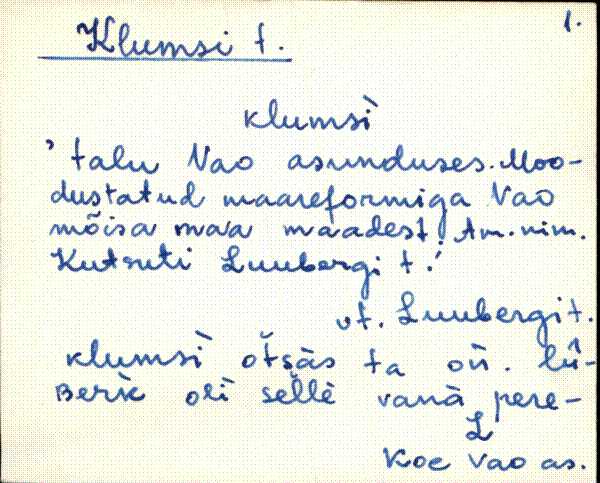 1.
Klumsi t.
klumsì
'talu Vao asunduses. Moo-
dustatud maareformiga Vao
mõisa maa maadest. Am. nim.
Kutsuti Luubergi t.'
vt. Luubergi t.
klumsì ta on. 
oli vanà pere-
L
Koe Vao as.